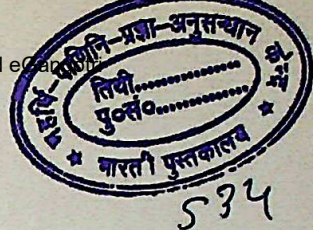 eGangotri
महर्षि-पाणिनि-प्रज्ञा-अनुसन्धान केन्द्र
तिथी................
पु०सं०................
★ भारती पुस्तकालय ★
534